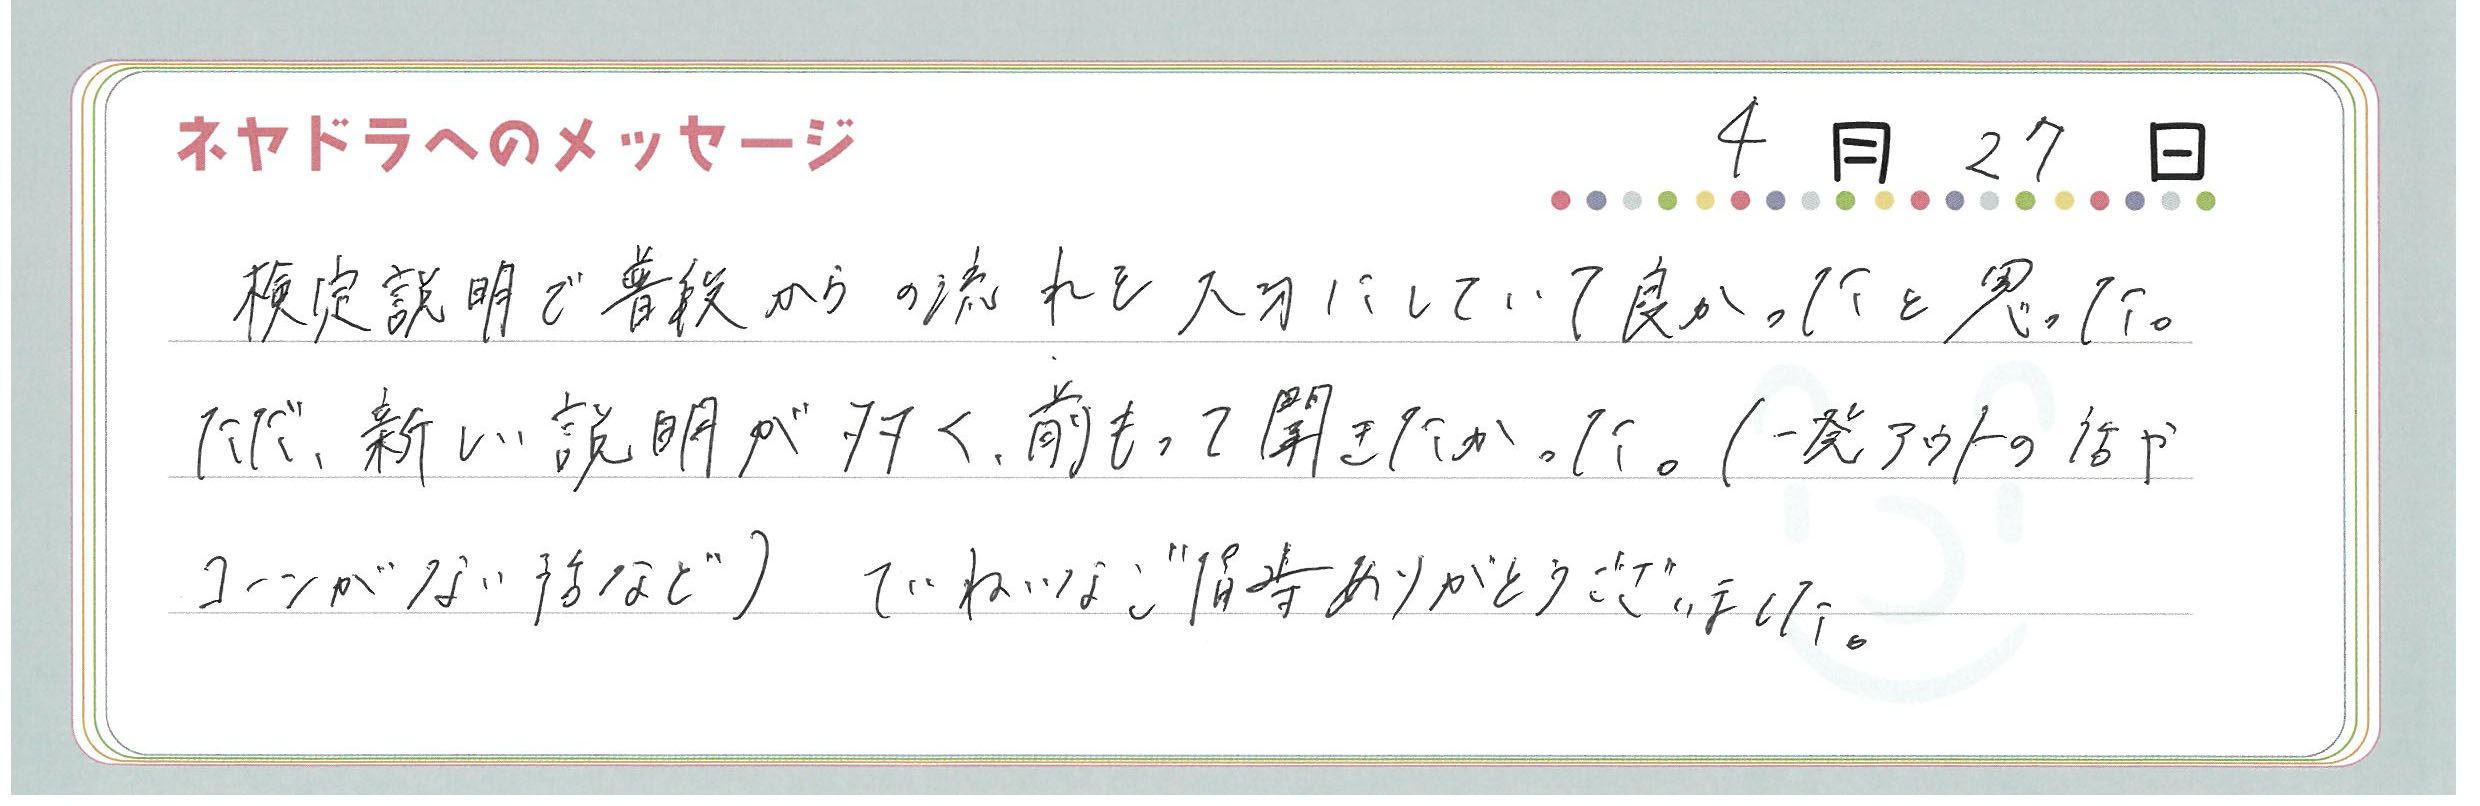 ネヤドラへのメッセージ
4月27日
検定説明で普段からの流れを大切にしていて良かったと思った。
ただ、新しい説明が多く、前もって聞きたかった。(一発アウトの話や
コーンがない話など) ていねいなご指導ありがとうございました。